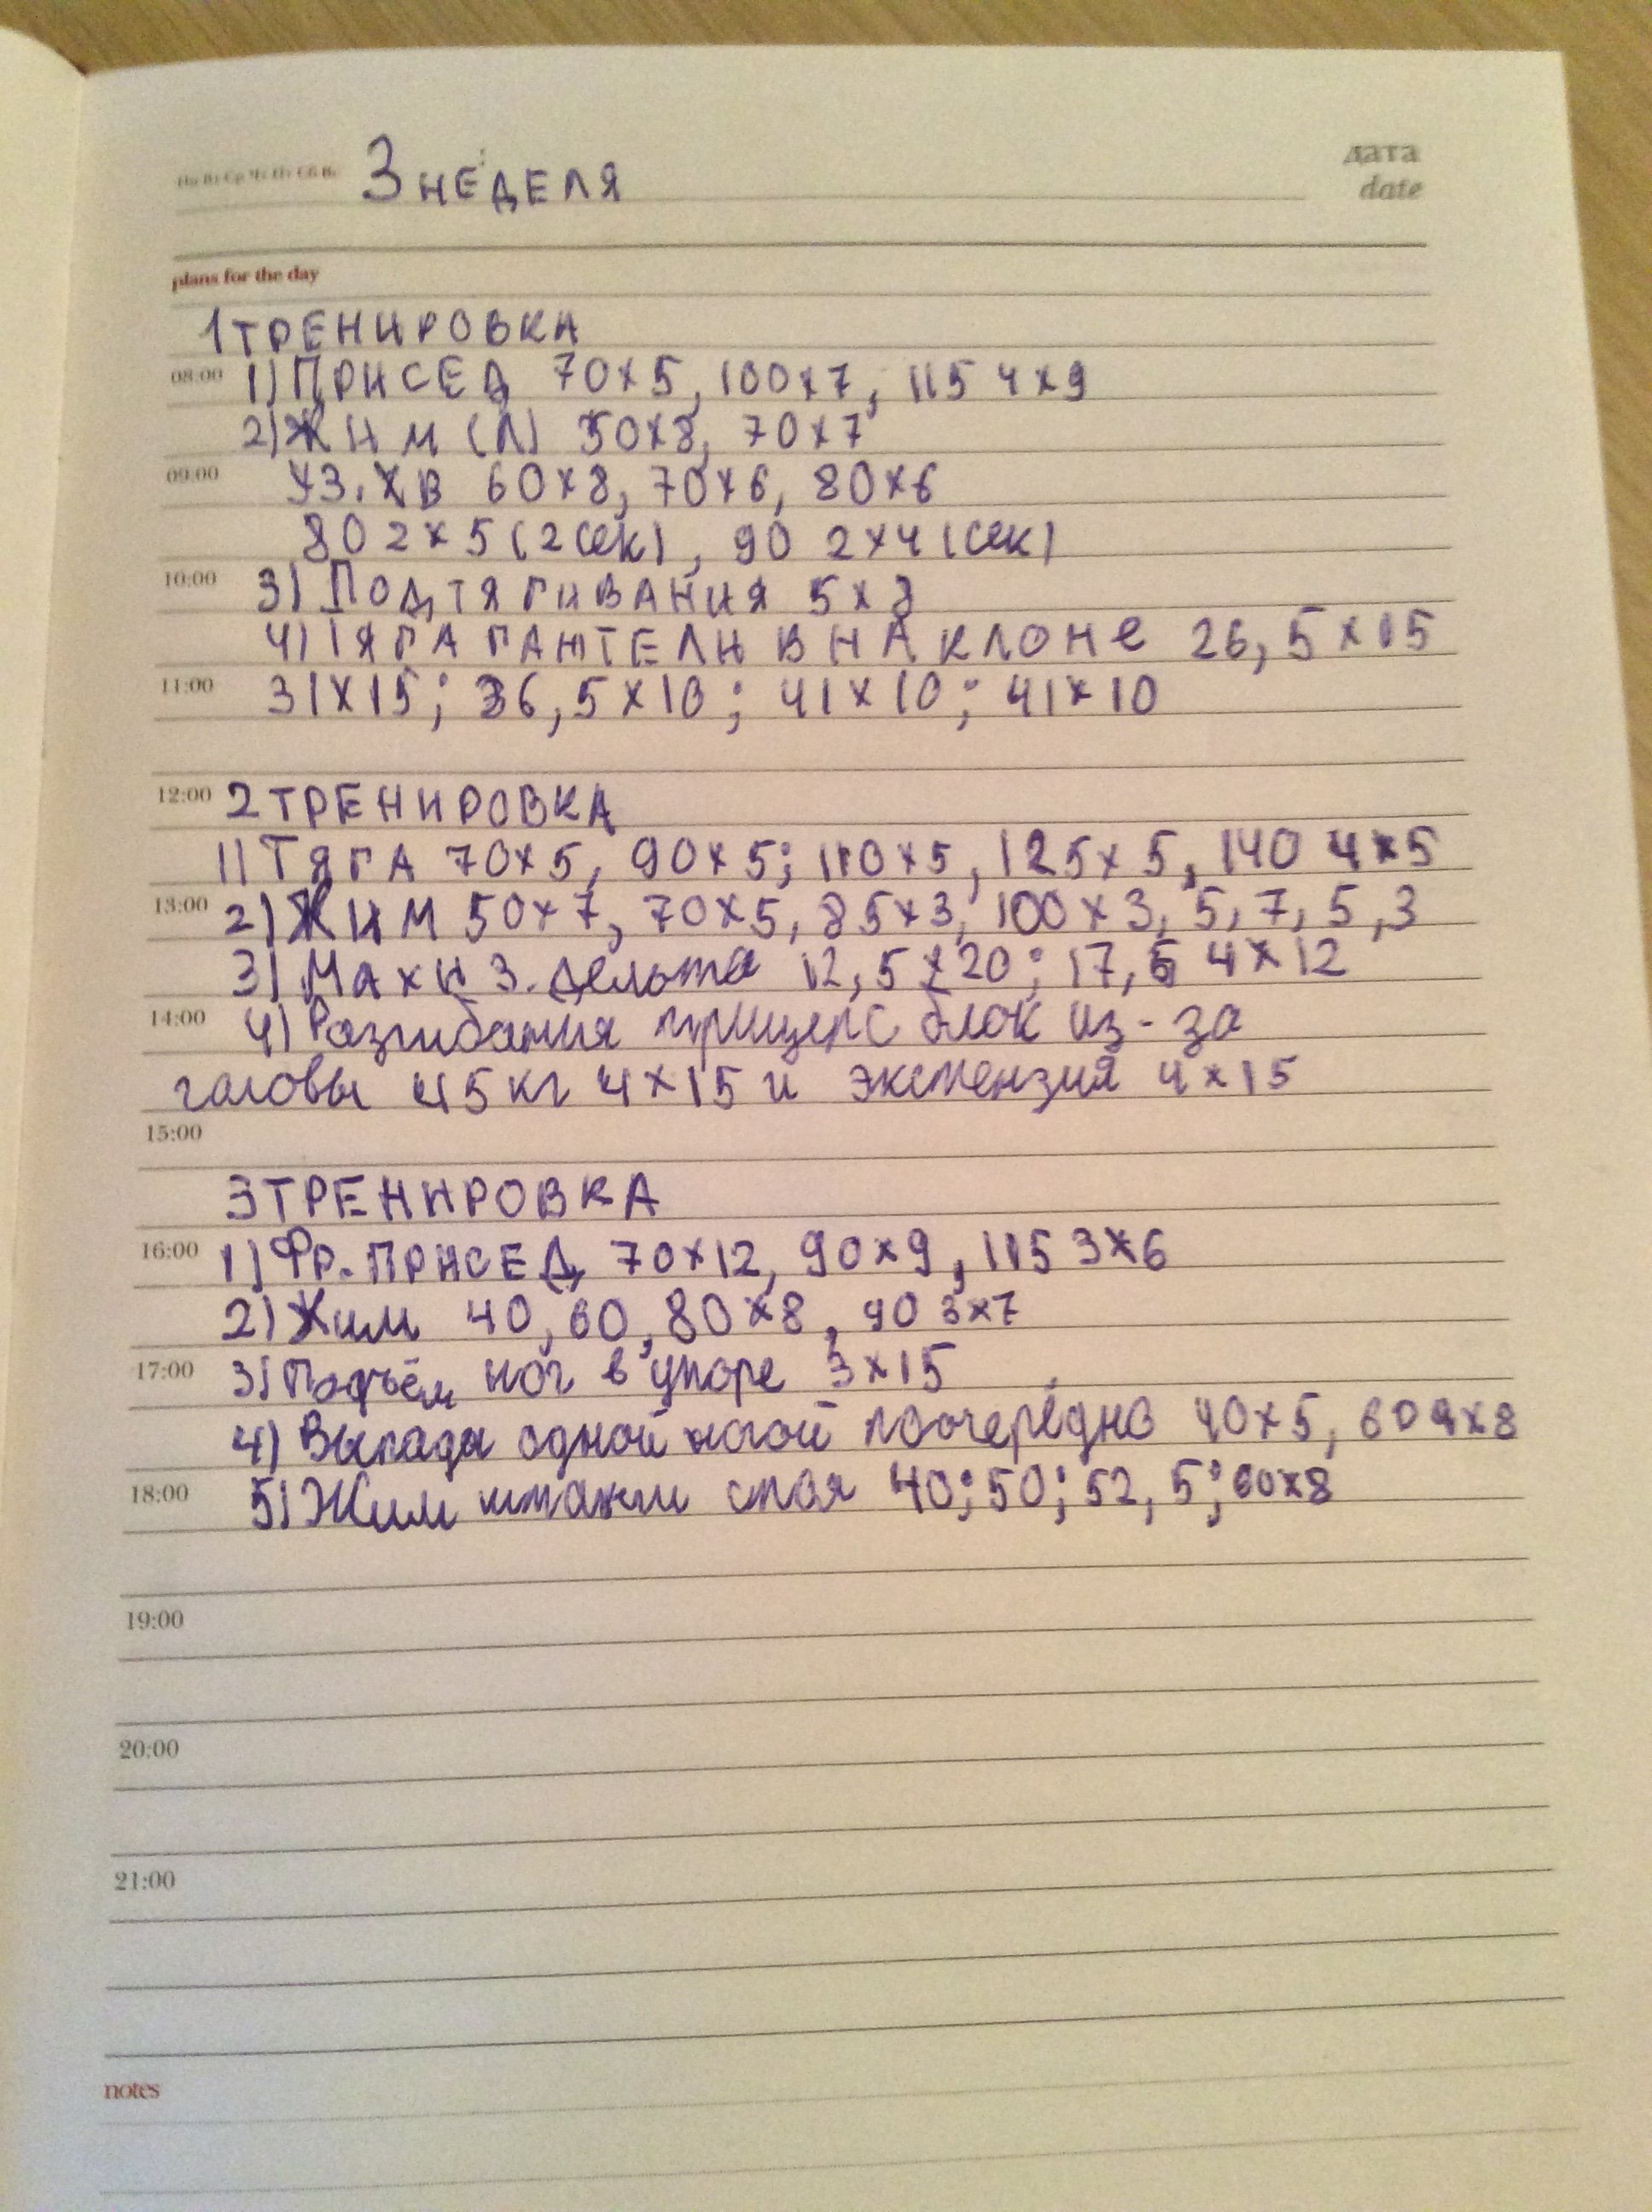 Пн Вт Ср Чт Пт Сб Вс 3 НЕДЕЛЯ
дата
date
plans for the day
1 ТРЕНИРОВКА
08:00 1) ПРИСЕД 70x5, 100x7, 115 4x9
2) ЖИМ (Л) 50x8, 70x7
09:00 УЗ. ХВ 60x8, 70x6, 80x6
80 2x5 (2 сек), 90 2x4 (сек)
10:00 3) ПОДТЯГИВАНИЯ 5x8
4) ТЯГА ГАНТЕЛИ В НАКЛОНЕ 26,5x15
11:00 31x15; 36,5x10; 41x10; 41x10
12:00 2 ТРЕНИРОВКА
1) ТЯГА 70x5, 90x5; 110x5, 125x5, 140 4x5
13:00 2) ЖИМ 50x7, 70x5, 85x3, 100x3, 5, 7, 5, 3
3) Махи З. дельта 12,5x20; 17,5 4x12
14:00 4) Разгибания трицепс блок из-за
головы 45 кг 4x15 и экстензия 4x15
15:00
3 ТРЕНИРОВКА
16:00 1) ФР. ПРИСЕД 70x12, 90x9, 115 3x6
2) Жим 40, 60, 80x8, 90 3x7
17:00 3) Подъём ног в упоре 3x15
4) Выпады одной ногой поочерёдно 40x5, 60 4x8
18:00 5) Жим штанги стоя 40; 50; 52,5; 60x8
19:00
20:00
21:00
notes